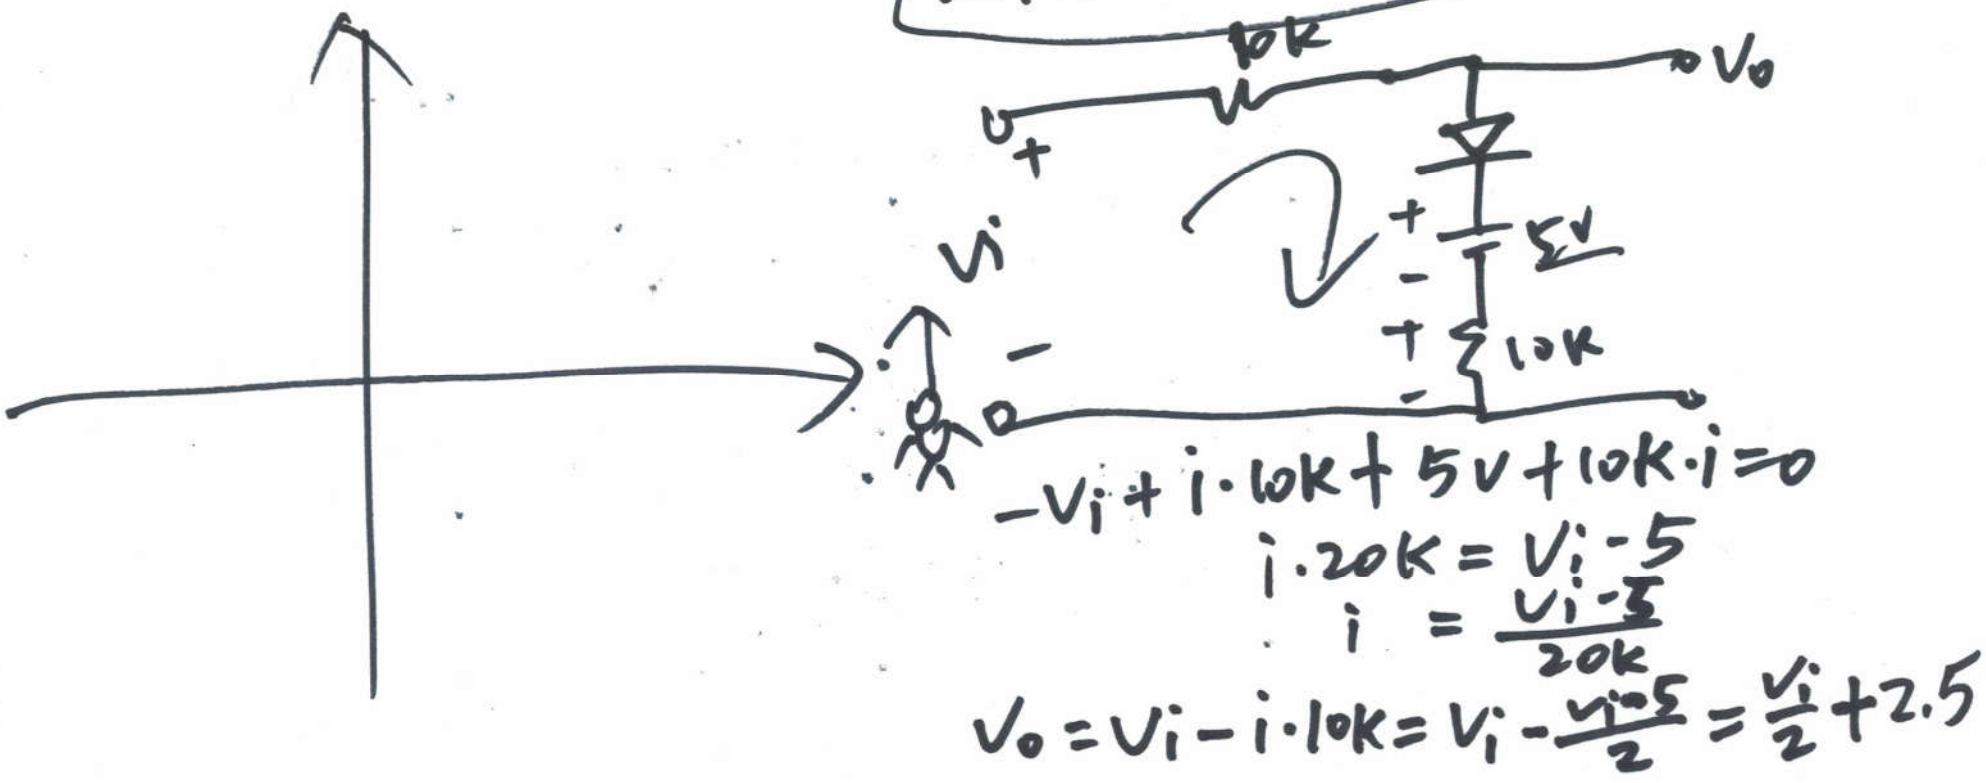 10K
Vo
+
Vi
+
5V
-
+
10K
-
-
-Vi + i·10K + 5V + 10K·i = 0
i·20K = Vi - 5
i = Vi-5 / 20K
Vo = Vi - i·10K = Vi - Vi-5 / 2 = Vi / 2 + 2.5